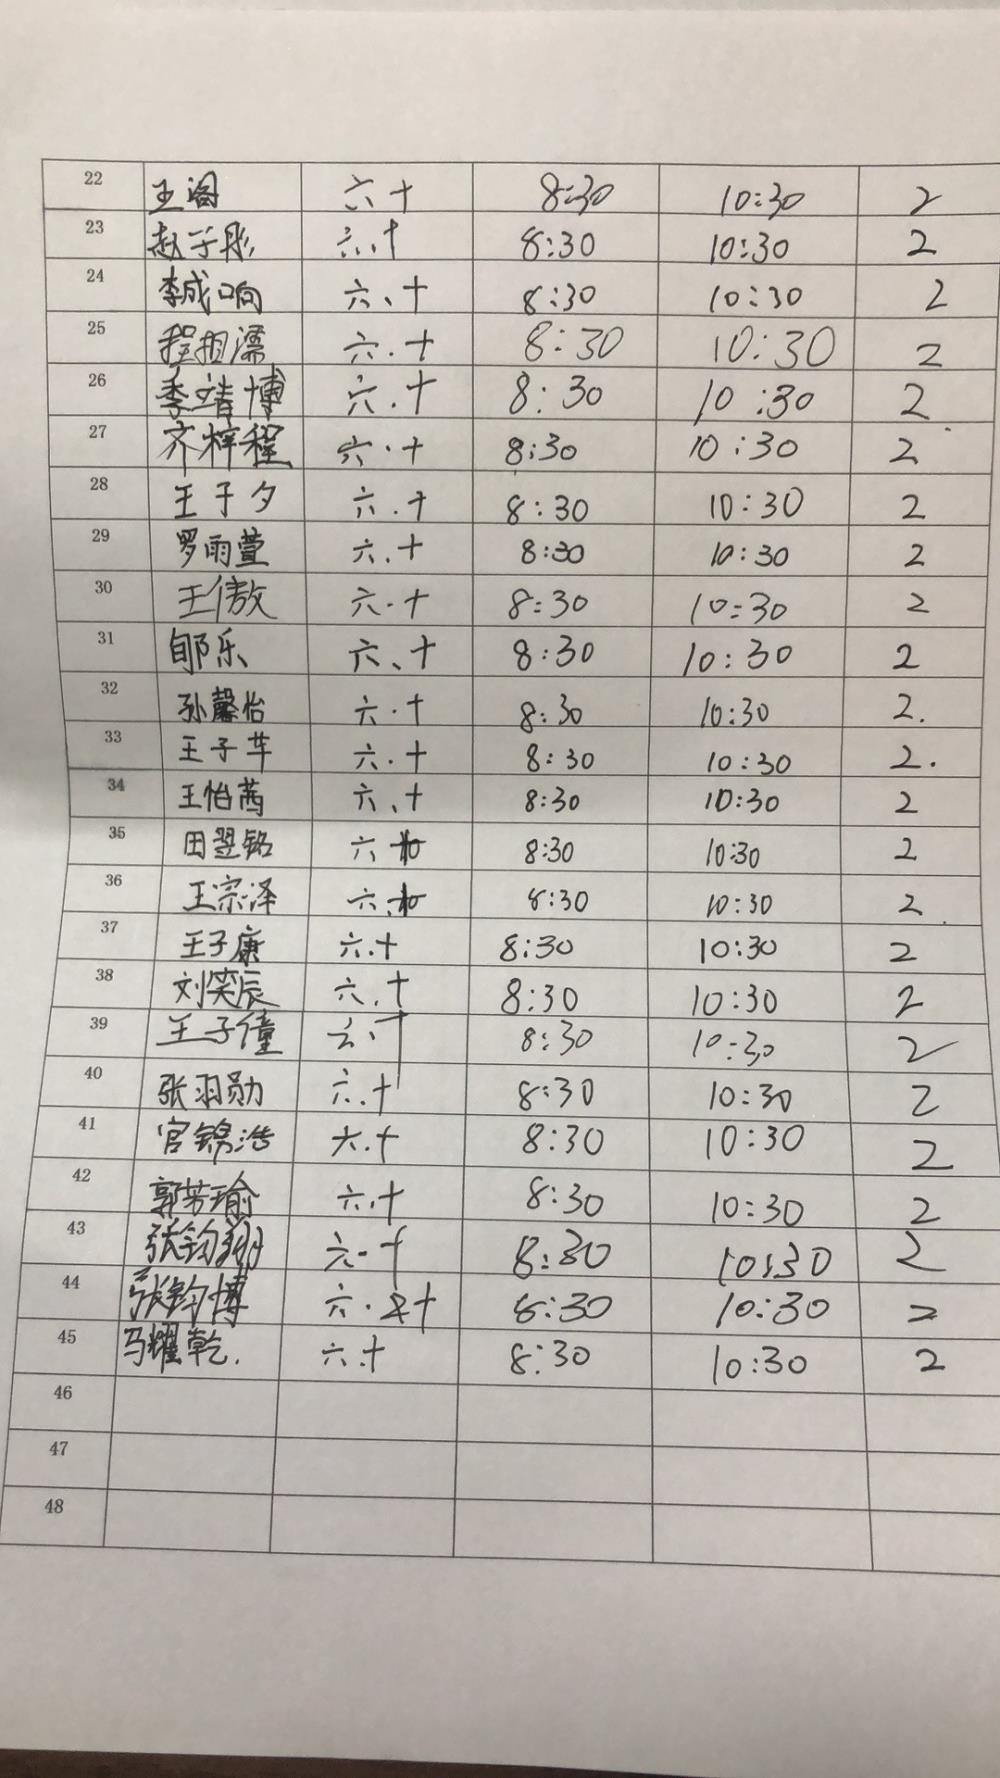 22 王阁 六十 8:30 10:30 2
23 赵子彤 六.十 8:30 10:30 2
24 李成响 六、十 8:30 10:30 2
25 程相濡 六.十 8:30 10:30 2
26 季靖博 六.十 8:30 10:30 2
27 齐梓程 六.十 8:30 10:30 2
28 王子夕 六.十 8:30 10:30 2
29 罗雨萱 六.十 8:30 10:30 2
30 王傲 六.十 8:30 10:30 2
31 郇乐 六、十 8:30 10:30 2
32 孙馨怡 六.十 8:30 10:30 2.
33 王子芊 六.十 8:30 10:30 2.
34 王怡茜 六、十 8:30 10:30 2
35 田翌铭 六、十 8:30 10:30 2
36 王宗泽 六.十 8:30 10:30 2
37 王子康 六.十 8:30 10:30 2
38 刘笑辰 六.十 8:30 10:30 2
39 王子僮 六.十 8:30 10:30 2
40 张羽勋 六.十 8:30 10:30 2
41 官锦浩 六.十 8:30 10:30 2
42 郭芳瑜 六.十 8:30 10:30 2
43 张钧翔 六.十 8:30 10:30 2
44 张钧博 六.十 8:30 10:30 2
45 马耀乾. 六.十 8:30 10:30 2
46
47
48